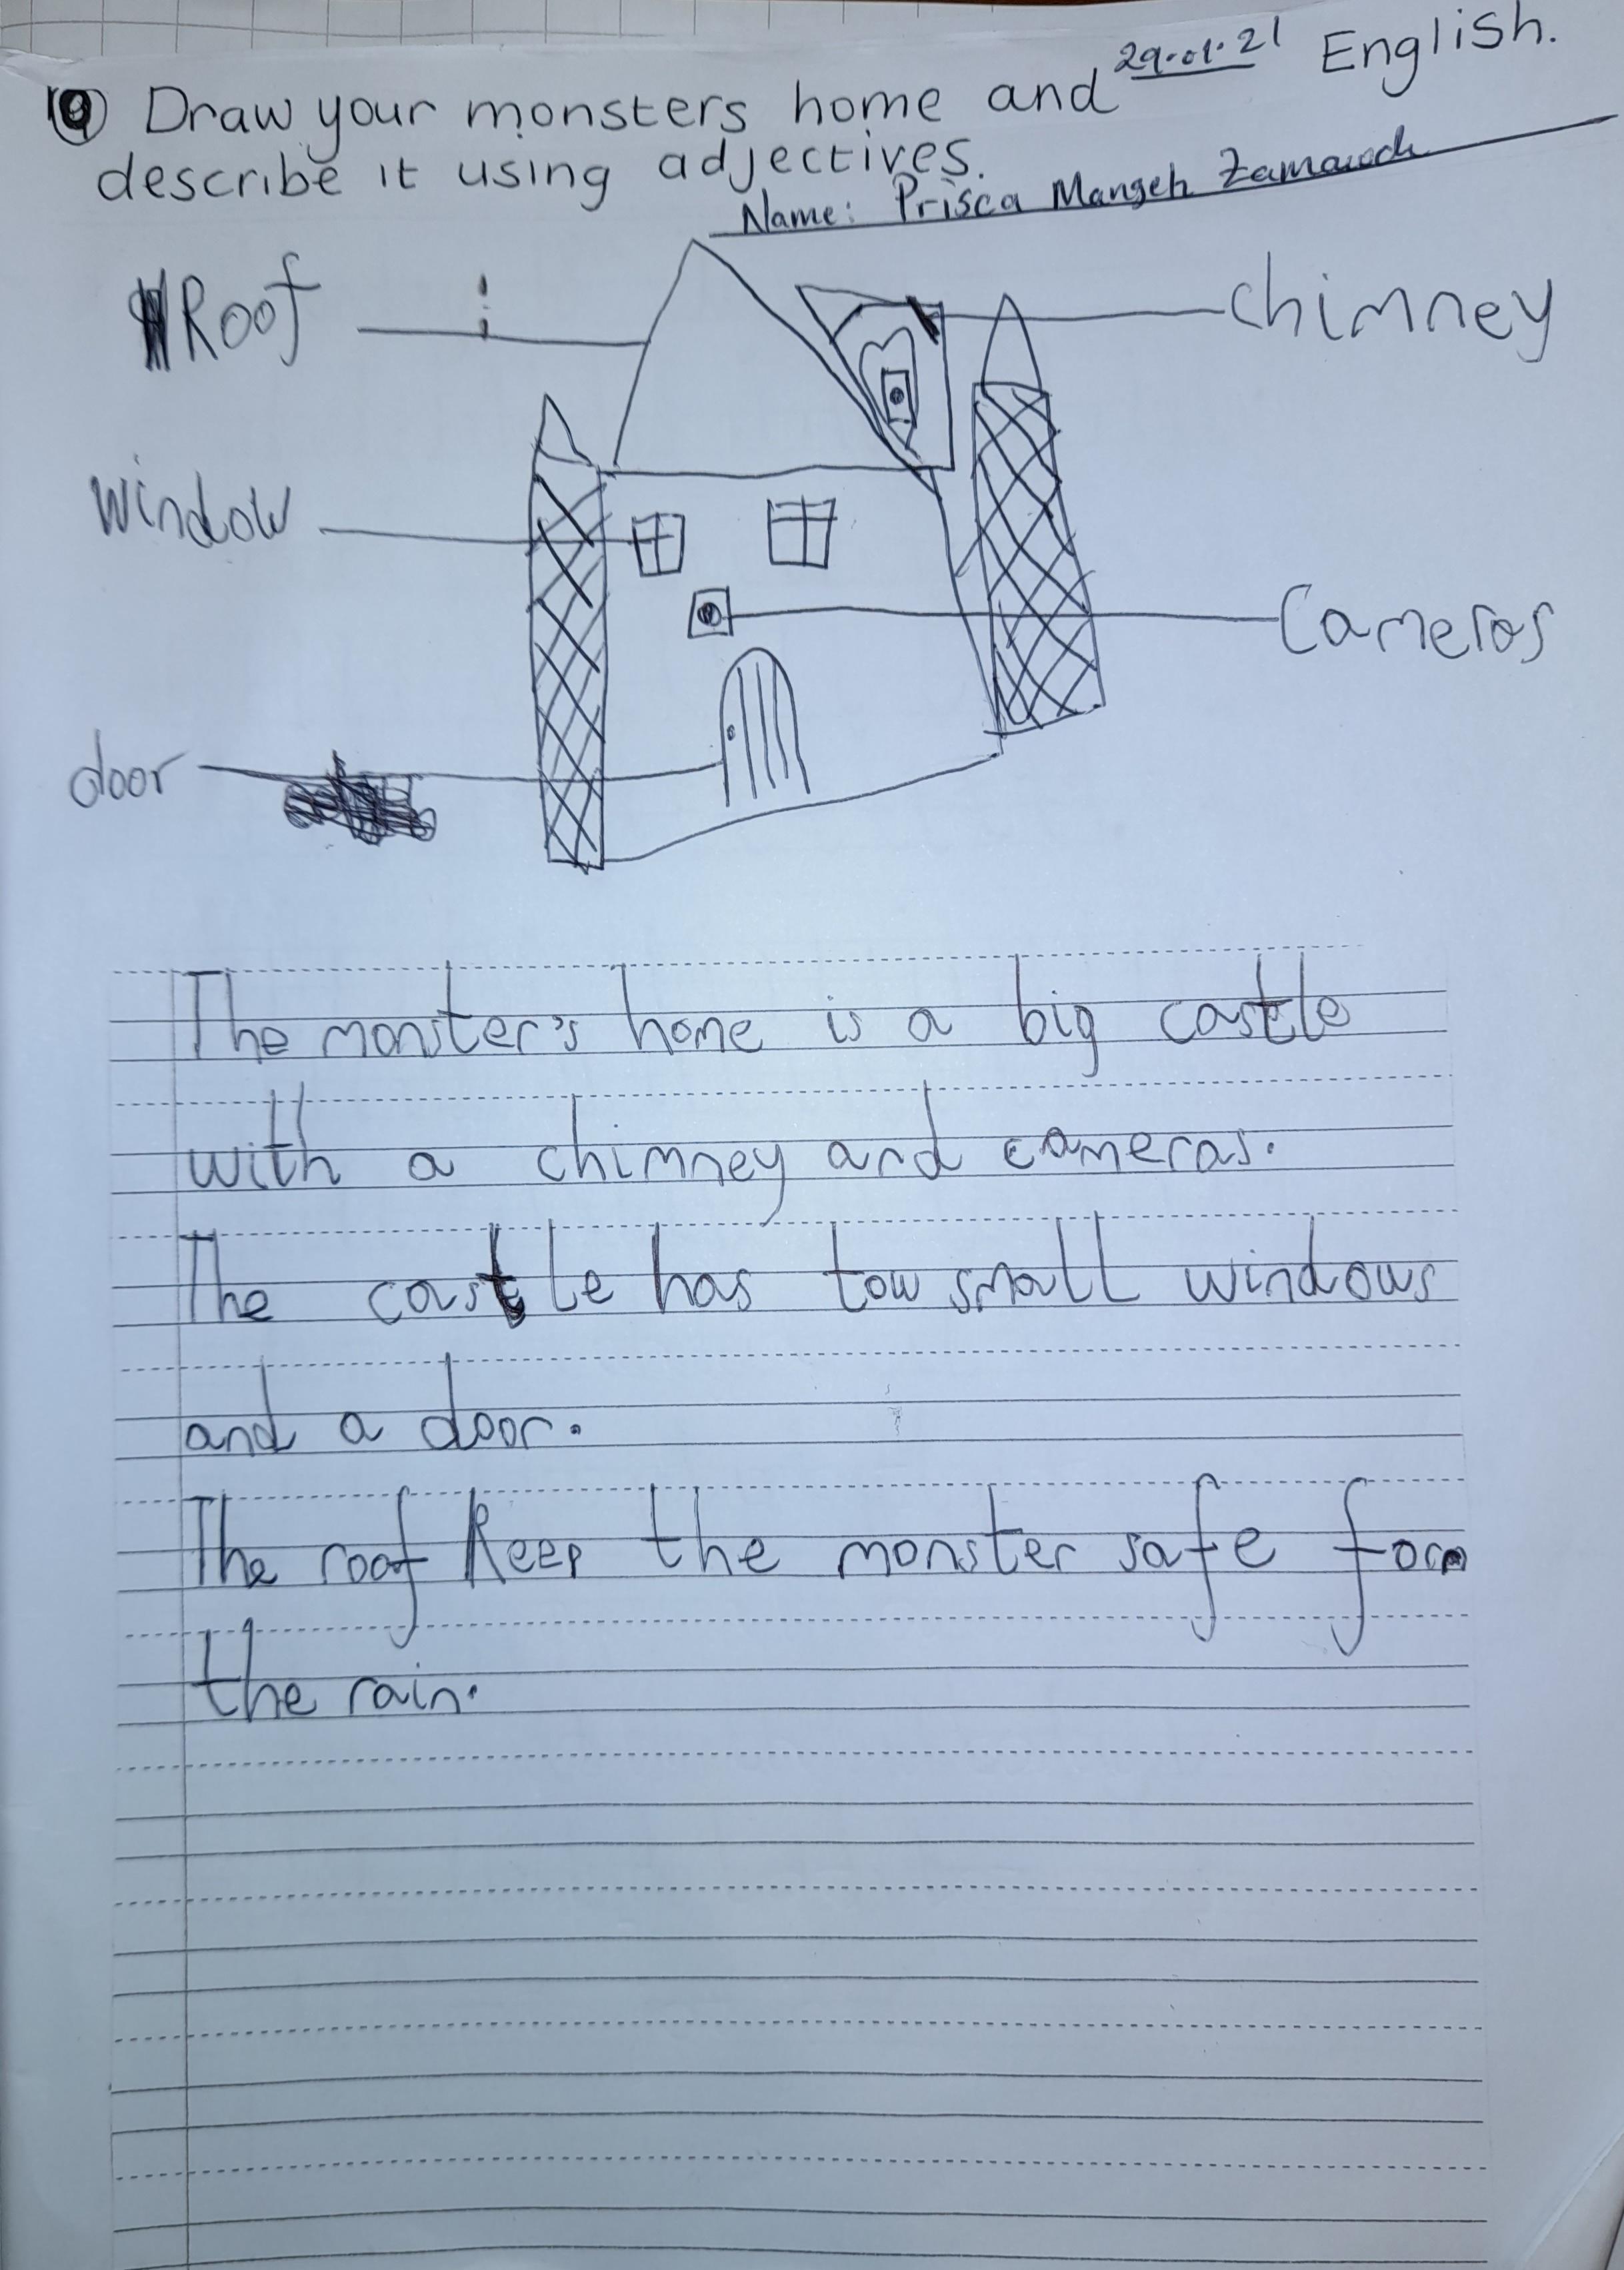 29.01.21 English.
9 Draw your monsters home and
describe it using adjectives.
Name: Prisca Mangeh
Roof
chimney
window
Cameras
door
The monster's home is a big castle
with a chimney and cameras.
The castle has tow small windows
and a door.
The roof keep the monster safe form
the rain.